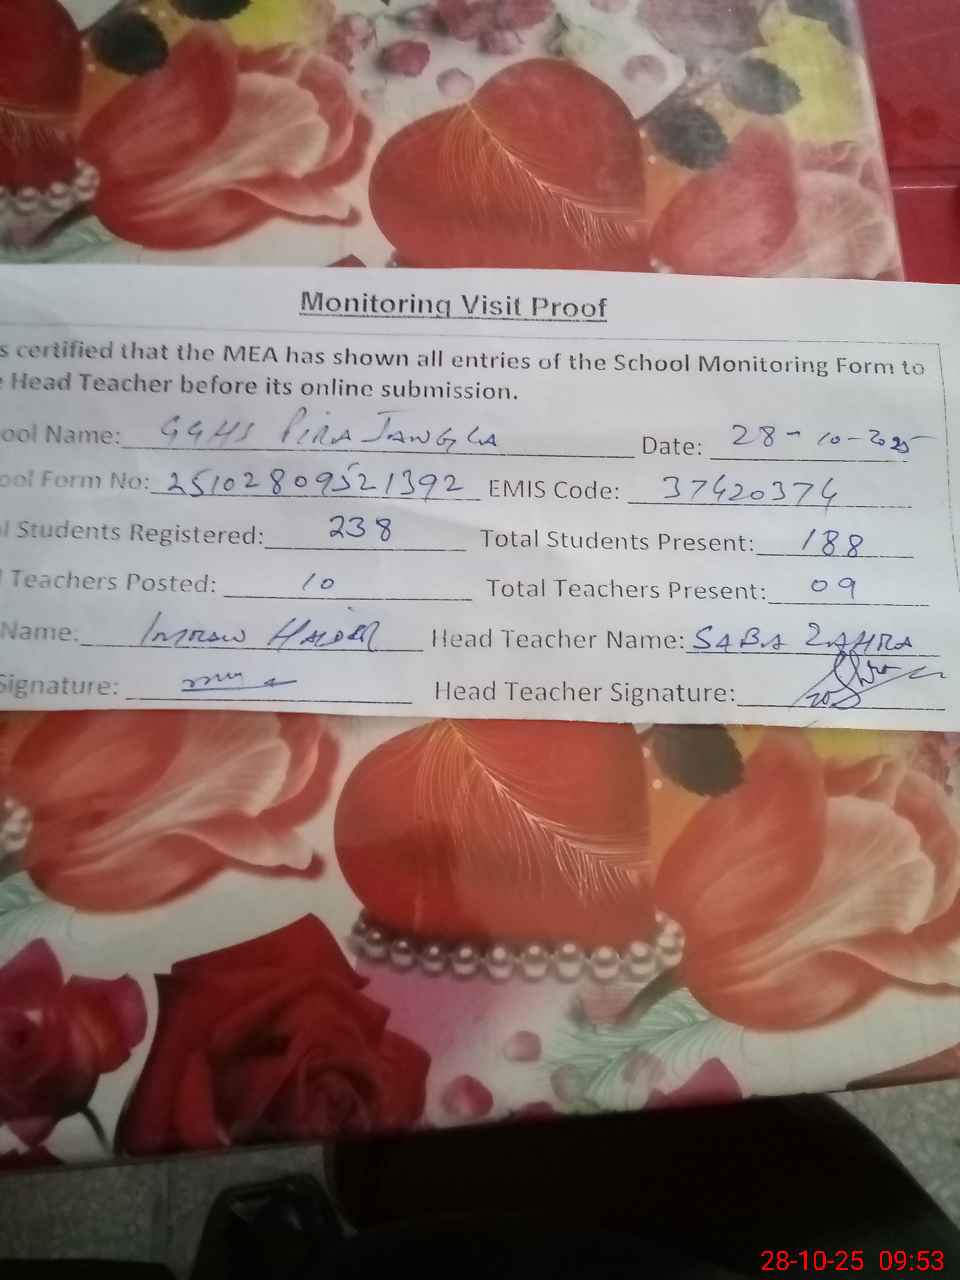 Monitoring Visit Proof
s certified that the MEA has shown all entries of the School Monitoring Form to
e Head Teacher before its online submission.
ool Name: GGHS PIRA JANGLA Date: 28-10-2025
ool Form No: 25102809521392 EMIS Code: 37420374
l Students Registered: 238 Total Students Present: 188
l Teachers Posted: 10 Total Teachers Present: 09
Name: IMRAN HAIDER Head Teacher Name: SABA ZAHRA
Signature: Head Teacher Signature:
28-10-25 09:53